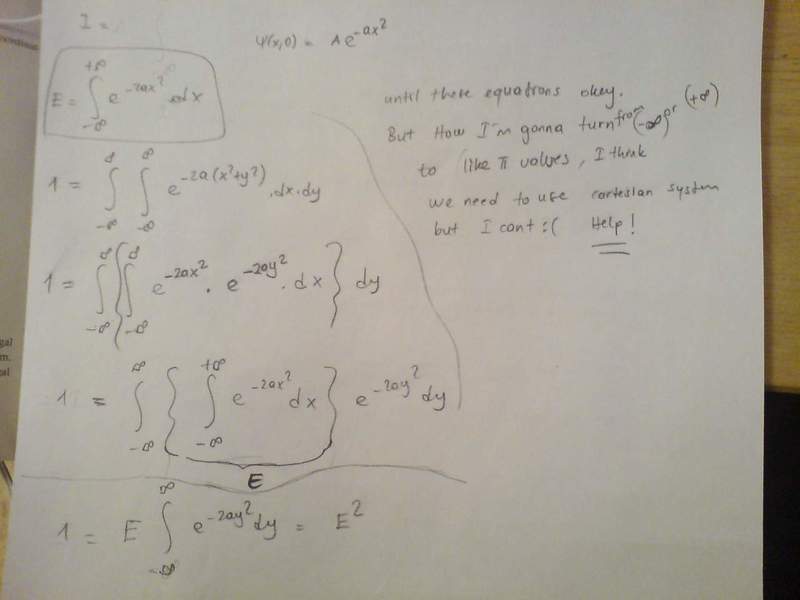 I =
Ψ(x,0) = A e^-ax²
E = ∫_-∞^+∞ e^-2ax² dx
until these equations okey.
But How I'm gonna turn from (-∞) or (+∞)
to like π values, I think
we need to use cartesian system
but I cant :( Help!
1 = ∫_-∞^∞ ∫_-∞^∞ e^-2a(x²+y²) .dx.dy
1 = ∫_-∞^∞ { ∫_-∞^∞ e^-2ax² . e^-2ay² . dx } dy
1 = ∫_-∞^∞ { ∫_-∞^+∞ e^-2ax² dx } e^-2ay² dy
E
1 = E ∫_-∞^∞ e^-2ay² dy = E²